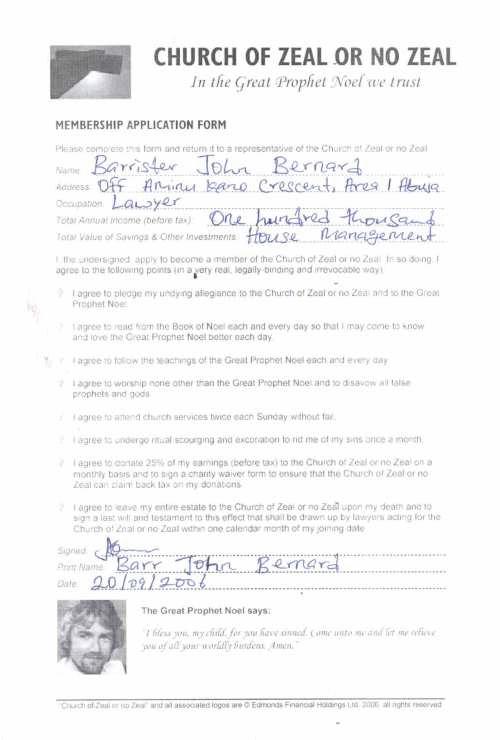 CHURCH OF ZEAL OR NO ZEAL
In the Great Prophet Noel we trust
MEMBERSHIP APPLICATION FORM
Please complete this form and return it to a representative of the Church of Zeal or no Zeal
Name: Barrister John Bernard
Address: Off Aminu Kano Crescent, Area 1 Abuja
Occupation: Lawyer
Total Annual Income (before tax): One hundred thousand
Total Value of Savings & Other Investments: House Management
I, the undersigned, apply to become a member of the Church of Zeal or no Zeal. In so doing, I
agree to the following points (in a very real, legally-binding and irrevocable way):
I agree to pledge my undying allegiance to the Church of Zeal or no Zeal and to the Great
Prophet Noel.
I agree to read from the Book of Noel each and every day so that I may come to know
and love the Great Prophet Noel better each day.
I agree to follow the teachings of the Great Prophet Noel each and every day
I agree to worship none other than the Great Prophet Noel and to disavow all false
prophets and gods.
I agree to attend church services twice each Sunday without fail.
I agree to undergo ritual scourging and excoriation to rid me of my sins once a month.
I agree to donate 25% of my earnings (before tax) to the Church of Zeal or no Zeal on a
monthly basis and to sign a charity waiver form to ensure that the Church of Zeal or no
Zeal can claim back tax on my donations.
I agree to leave my entire estate to the Church of Zeal or no Zeal upon my death and to
sign a last will and testament to this effect that shall be drawn up by lawyers acting for the
Church of Zeal or no Zeal within one calendar month of my joining date.
Signed:
Print Name: Barr John Bernard
Date: 20/09/2006
The Great Prophet Noel says:
"I bless you, my child, for you have sinned. Come unto me and let me relieve
you of all your worldly burdens. Amen."
"Church of Zeal or no Zeal" and all associated logos are © Edmonds Financial Holdings Ltd. 2006. all rights reserved